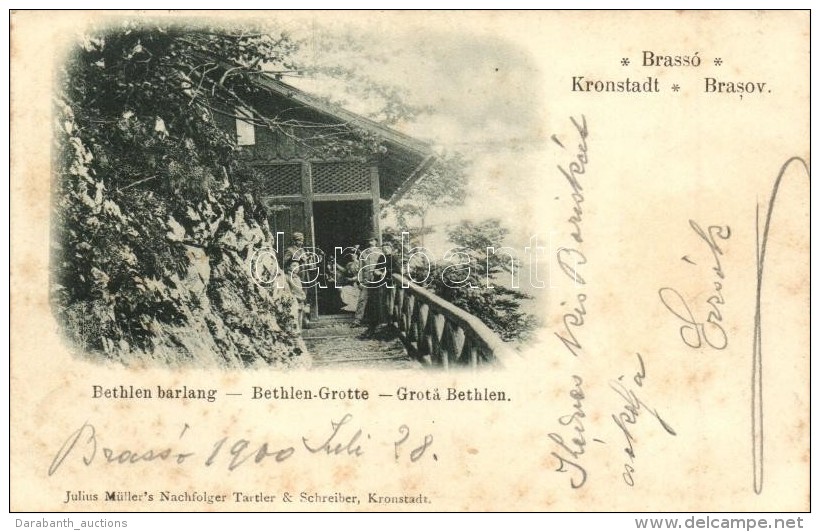 * Brassó *
Kronstadt * Brașov.
darabanth
Bethlen barlang — Bethlen-Grotte — Grotă Bethlen.
Brassó 1900 Juli 28.
Kedves kis Bariskát
csókolja
Erzsók
Julius Müller's Nachfolger Tartler & Schreiber, Kronstadt.
Darabanth_auctions
www.delcampe.net